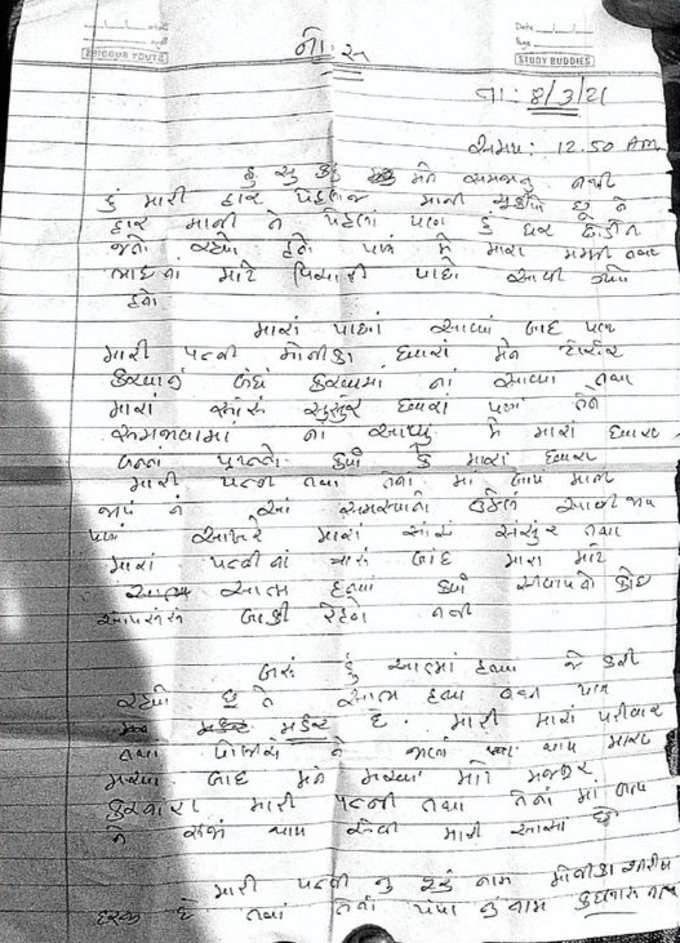 Date
Page
STUDY BUDDIES
નોંધ
તા: 8/3/21
સમય: 12.50 Am
હું શું કહું મને સમજાતું નથી
હું મારી હાર પહેલાજ માની ચુક્યો છું ને
હાર માની તે પહેલાં પણ હું ઘર છોડીને
જતો રહ્યો હતો પણ મે મારા મમ્મી તથા
ભાઇનાં માટે વિચારી પાછો આવી ગયો
હતો
મારાં પાછાં આવ્યાં બાદ પણ
મારી પત્ની મોનીકા દ્વારાં મને ટોર્ચર
કરવાનું બંધ કરવામાં નાં આવ્યા તથા
મારાં સાસું સસુર દ્વારાં પણ તેને
સમજાવામાં નાં આવ્યું મે મારાં દ્વારા
બનતાં પ્રયત્નો કર્યા કે મારાં દ્વારા
મારી પત્ની તથા તેના માં બાપ માની
જાય ને આ સમસ્યાનો ઉકેલ આવી જાય
પણ આખરે મારાં સાસું સસુર તથા
મારાં પત્નીનાં બાદ મારા માટે
આત્મ હત્યાં કર્યા સીવાયનો કોઇ
બાકી રહેતો નથી
હું આત્માં હત્યા જે કરી
રહ્યો છું તે આત્મ હત્યા નથી પણ
મર્ડર છે. મારી મારાં પરીવાર
તથા પોલીસ ને થાય મારા
મરવા બાદ મને મરવાં માટે મજબુર
કરનારા મારી પત્ની તથા તેનાં માં બાપ
ને સજાં થાય એવી મારી આશાં છે
મારી પત્ની નું પુરું નામ મોનીકા
છે તથાં તેનાં પપ્પા નું નામ